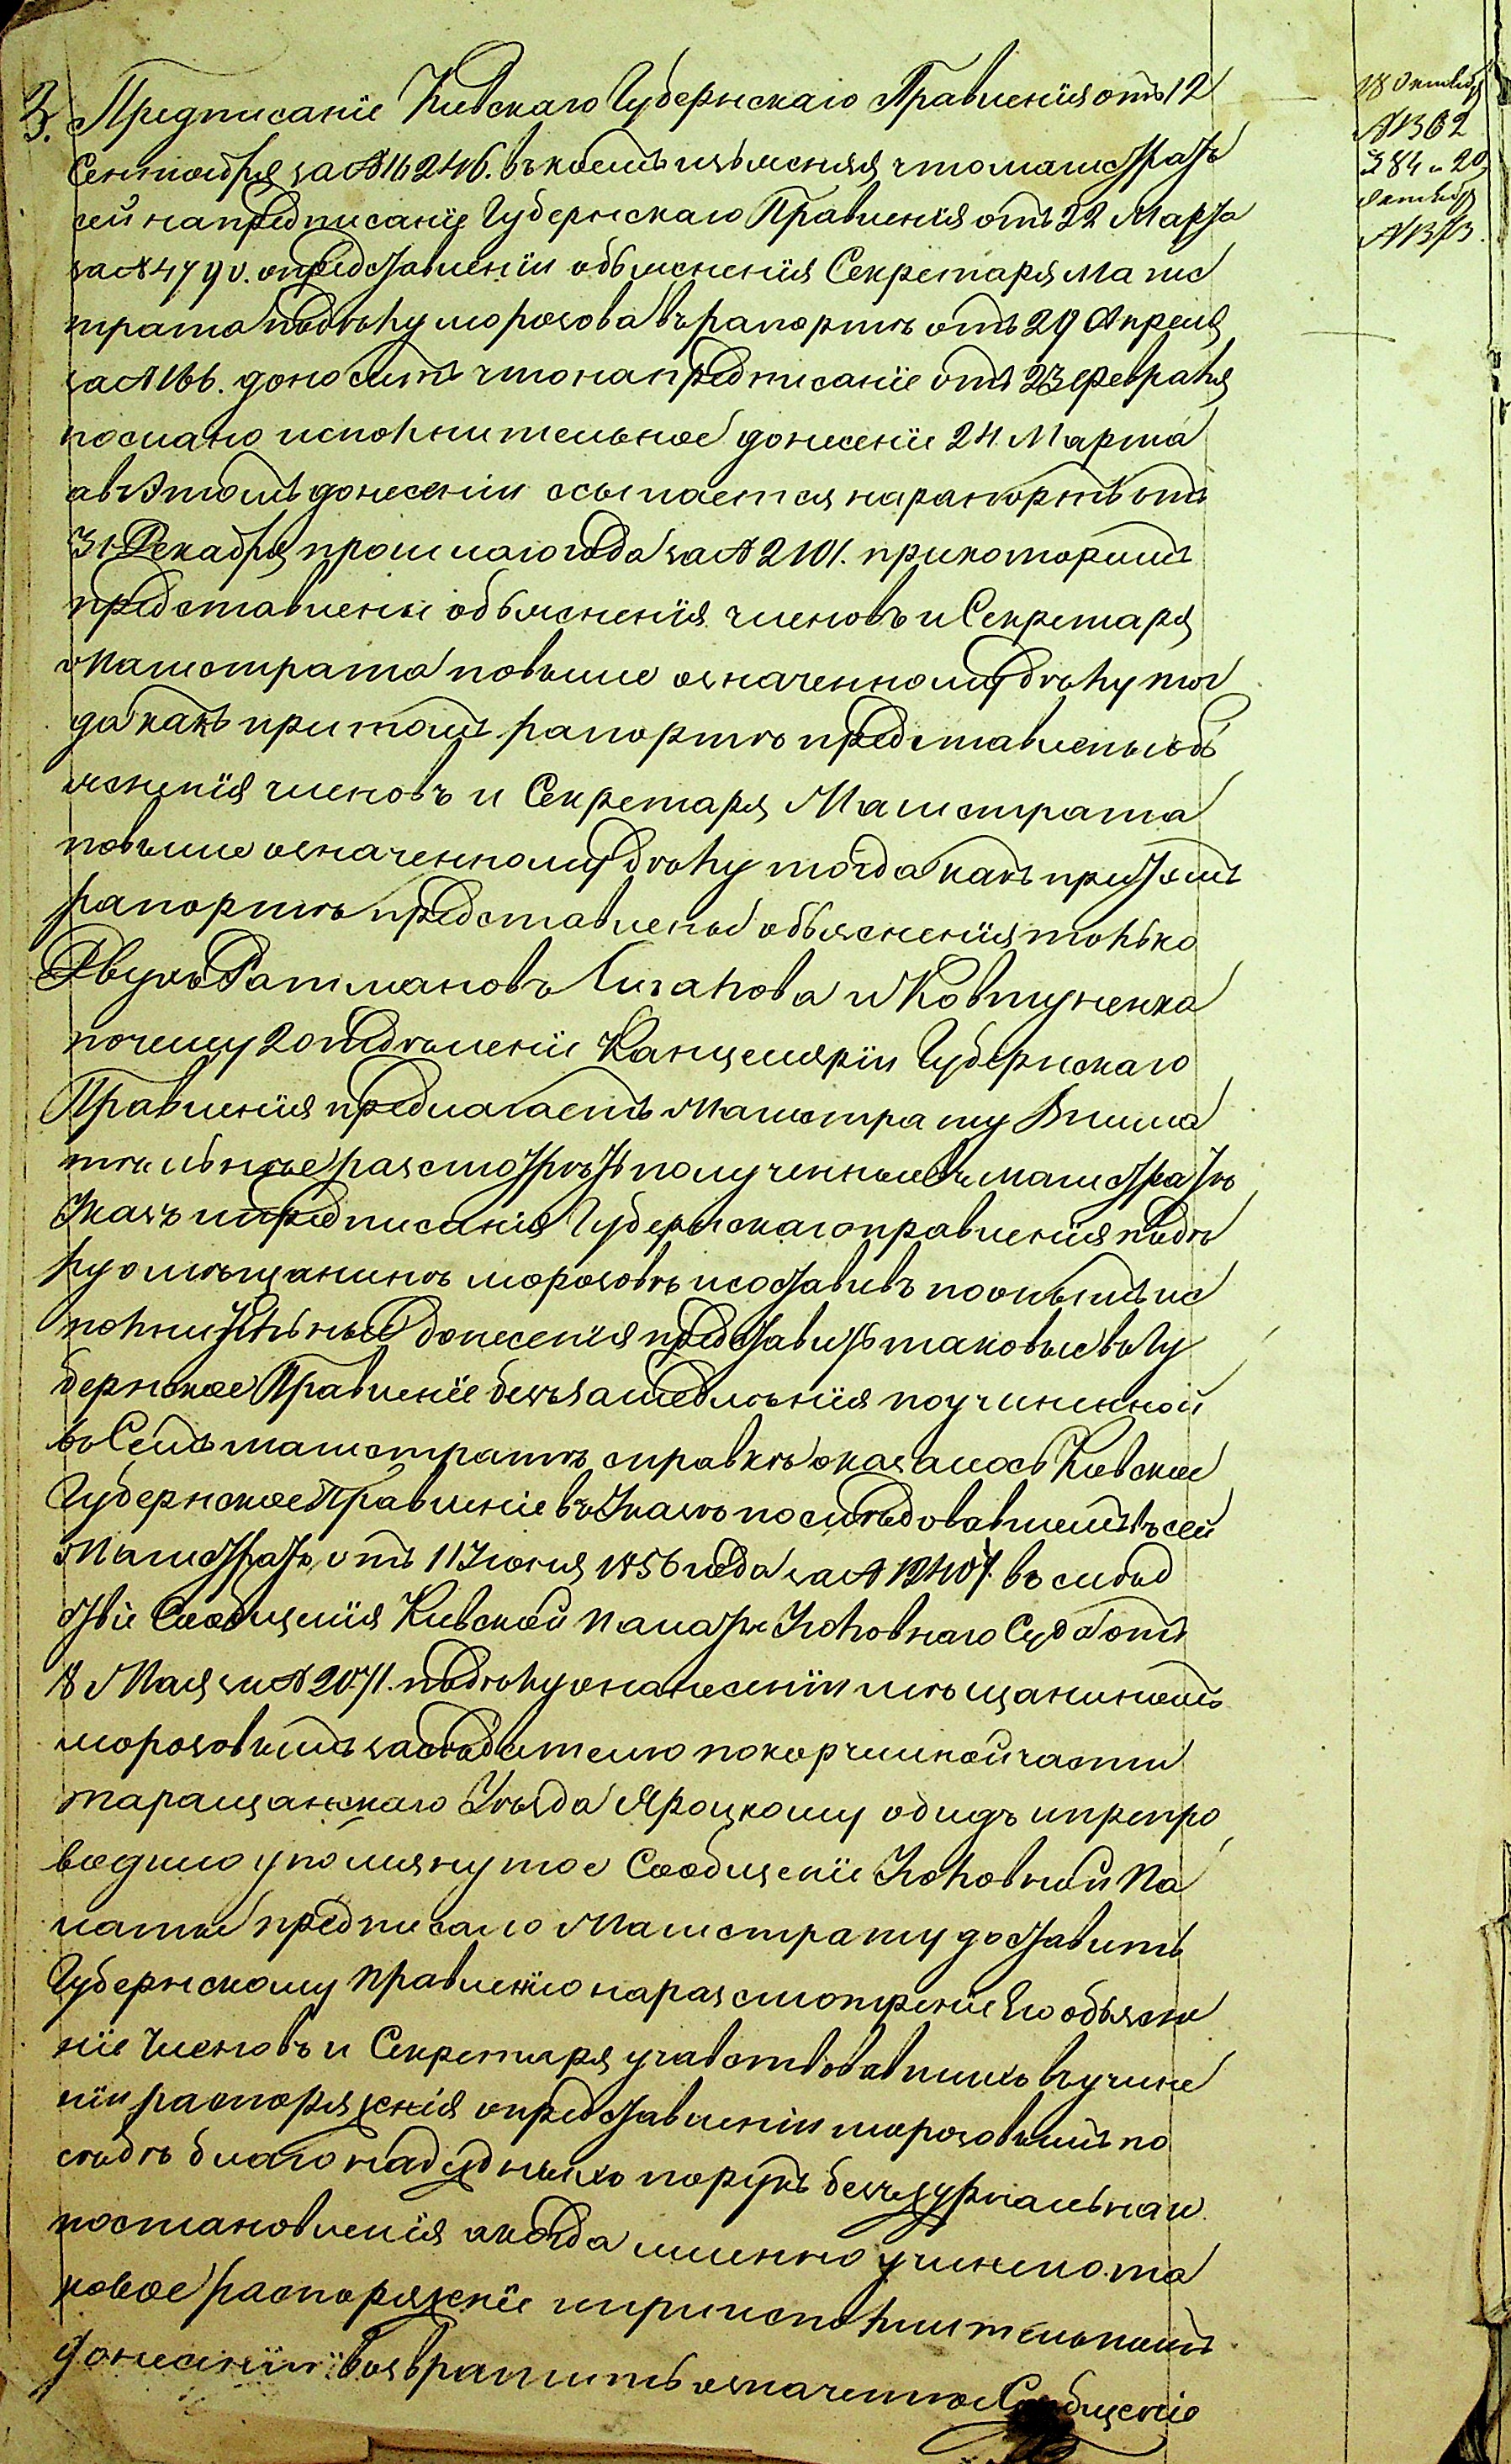 3. Предписаніе Кіевскаго Губернскаго Правленія отъ 12
Сентября за № 16246. въ коемъ изъясняя что магистратъ
сей на предписаніе Губернскаго Правленія отъ 22 Марта
за № 4790. о представленіи объясненія Секретаря Магис
трата по дѣлу морозова въ рапортѣ отъ 29 Апреля
за № 166. доноситъ что на предписаніе отъ 23 февраля
послано исполнительное донесеніе 24 Марта
а въ этомъ донесеніи ссылается на рапортъ отъ
31 Декабря прошлаго года за № 2101. при которомъ
представлены объясненія членовъ и Секретаря
Магистрата по выше означенному дѣлу тог
да какъ при томъ рапортѣ представлены объ
ясненія членовъ и Секретаря Магистрата
по выше означенному дѣлу тогда какъ при томъ
рапортѣ представлены объясненія только
Двухъ Ратмановъ и Ковтуненка
почему 2 отдѣленіе Канцеляріи Губернскаго
Правленія предлагаетъ Магистрату Внима
тѣльнѣе разсмотрѣть полученные въ магистратѣ
Указъ и предписанія Губернскаго правленія по дѣ
лу о мѣщанинѣ морозовѣ и составивъ по онымъ ис
полнительные донесенія представить таковые въ Гу
бернское Правленіе безъ замедлѣнія по учиненной
въ Семъ магистратѣ справкѣ оказалось Кіевское
Губернское Правленіе въ Указѣ последовавшемъ въ сей
Магистратъ отъ 11 Іюня 1856 года за № 12407. въ слѣд
ствіе Сообщенія Кіевской палаты Уголовнаго Суда отъ
18 Мая за № 2071. по дѣлу о нанесеніи мѣщаниномъ
морозовымъ засѣдателю по корчмной части
таращанскаго Уѣзда Яроцкому обидъ и препро
водило упомянутое Сообщеніе Уголовной Па
латы предписало Магистрату доставить
Губернскому правленію на разсмотреніе Его объясне
ніе Членовъ и Секретаря учавствовавшихъ въ учине
ніи распоряженія о представленіи морозовымъ по
себѣ благонадежныхъ порукъ безъ журнальнаго
постановленія и когда именно учинено та
ковое распоряженіе и при исполнительномъ
донесеніи возвратить означенное Сообщеніе
18 Октября
№ 1362
20
Октября